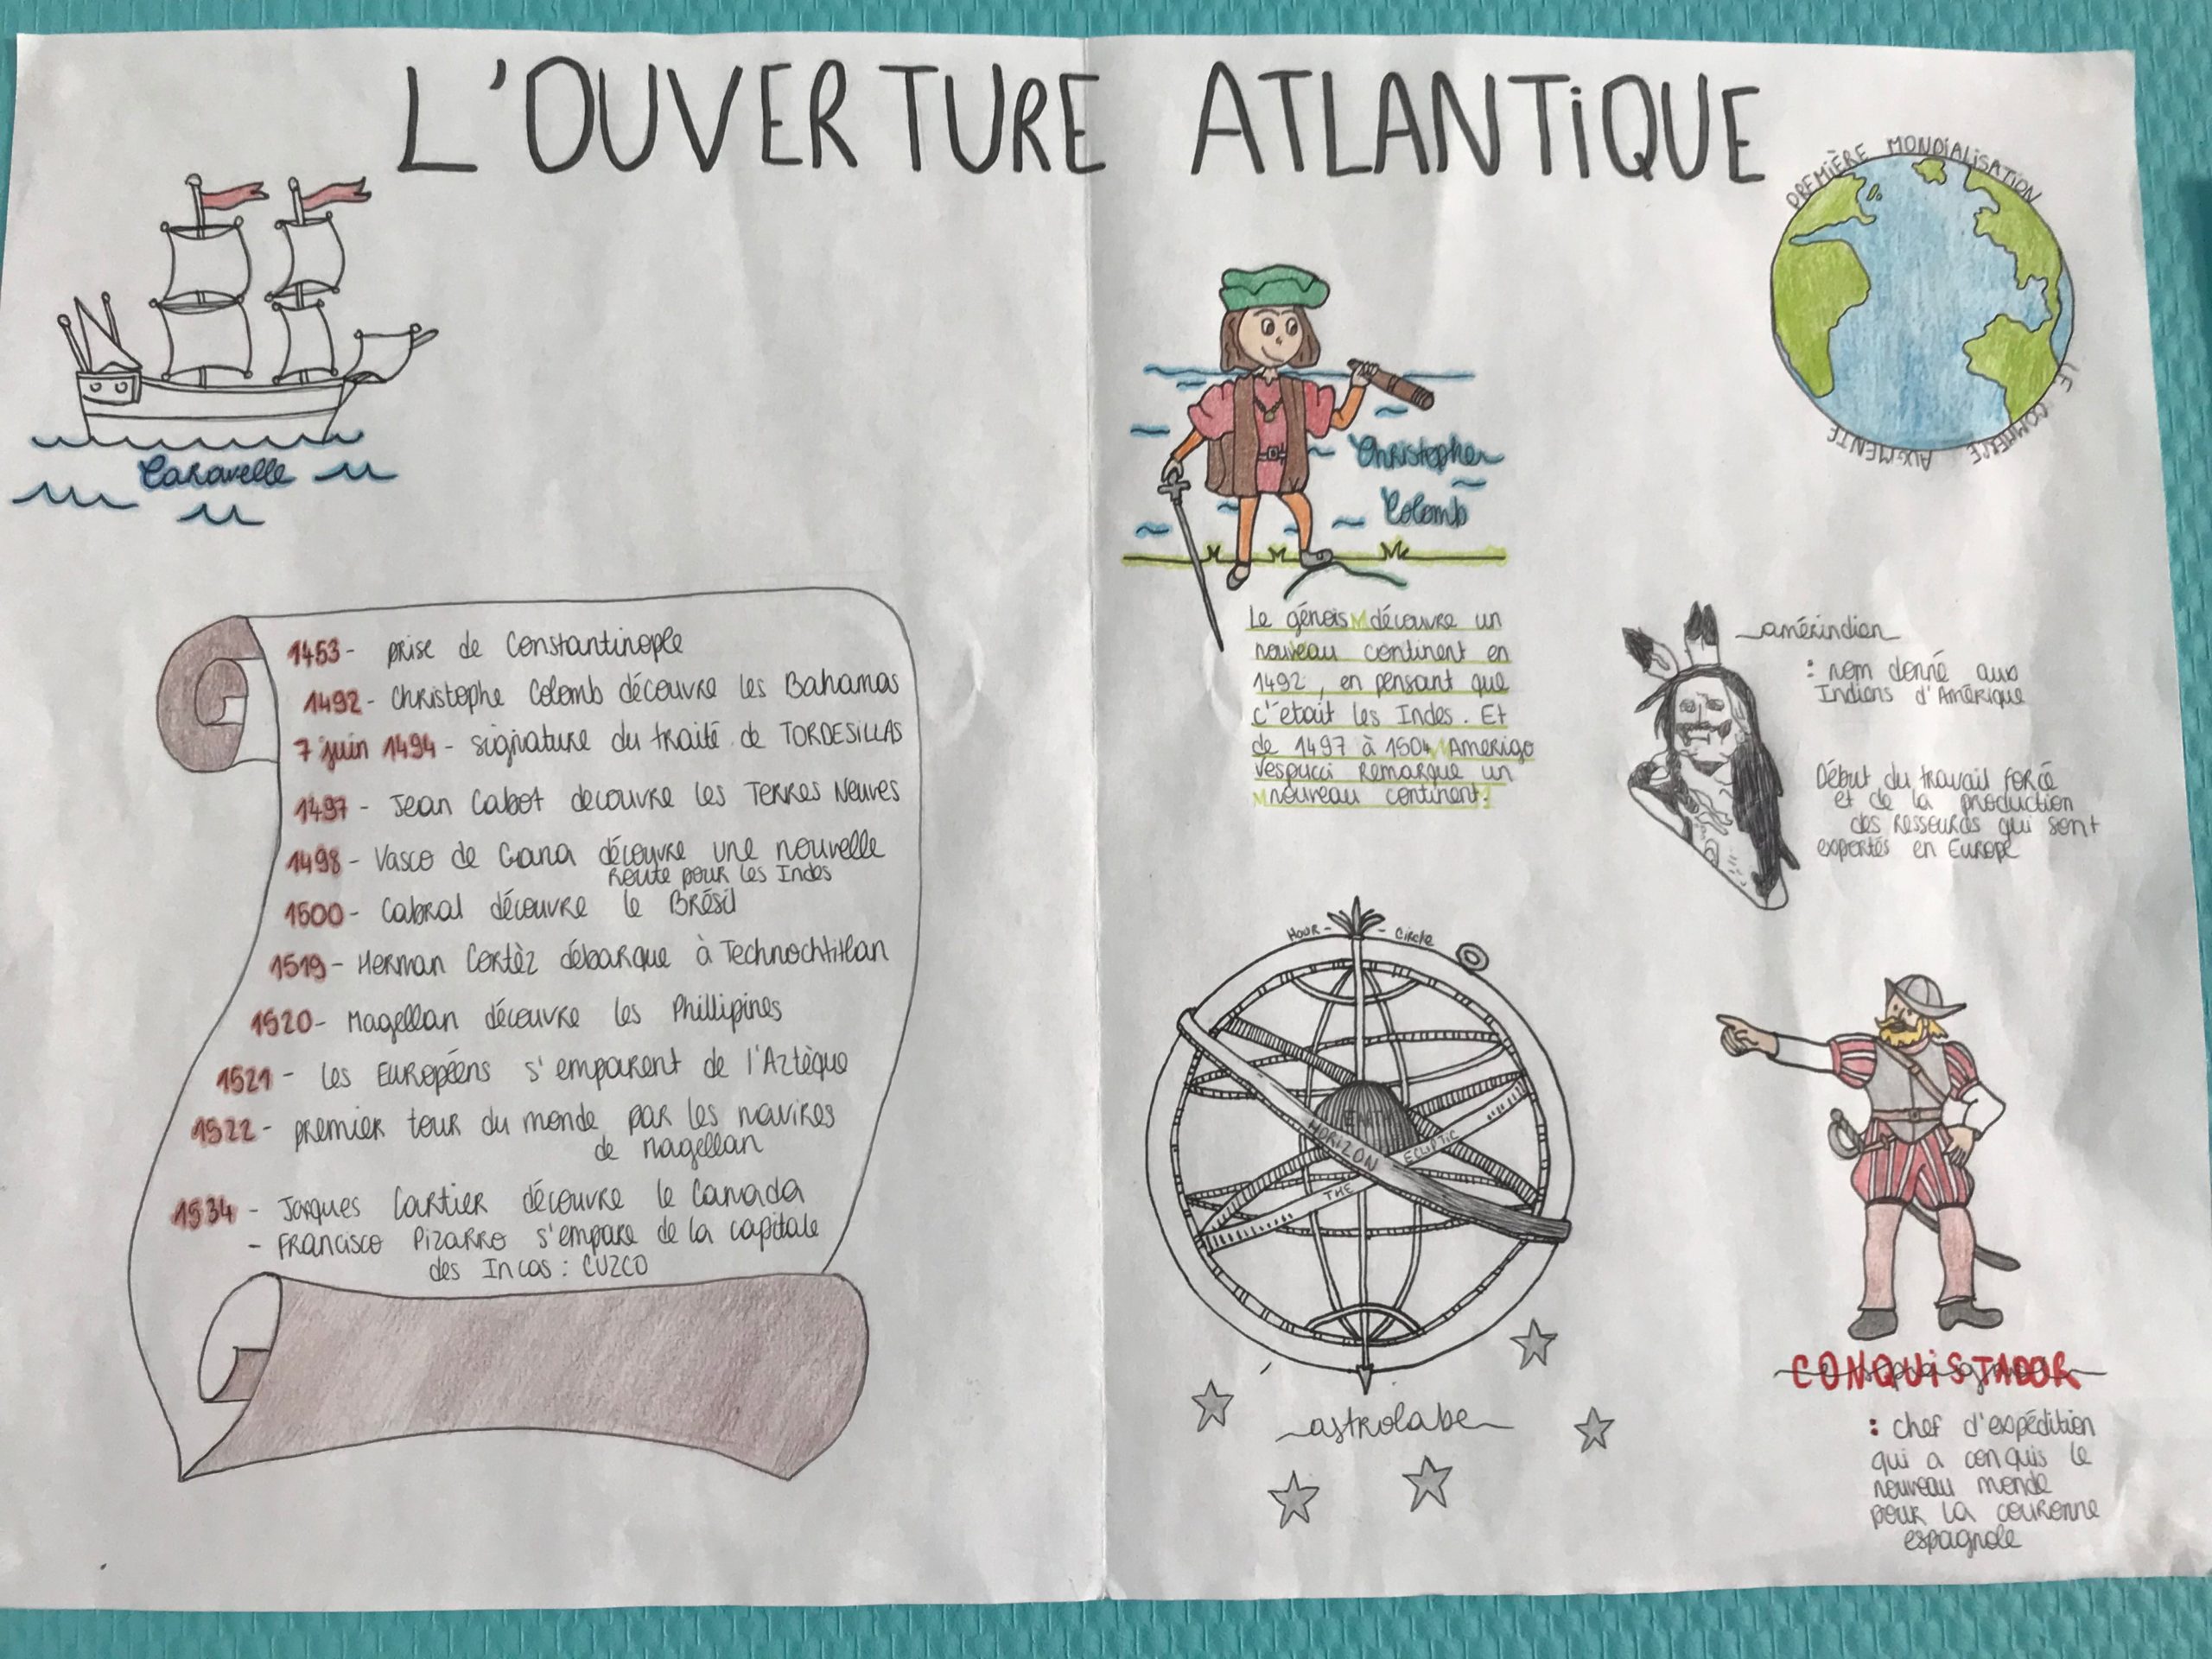 L'OUVERTURE ATLANTIQUE
Caravelle
1453 - prise de Constantinople
1492 - Christophe Colomb découvre les Bahamas
7 juin 1494 - signature du traité de TORDESILLAS
1497 - Jean Cabot decouvre les Terres Neuves
1498 - Vasco de Gana découvre une nouvelle
route pour les Indes
1500 - Cabral découvre le Brésil
1519 - Herman Cortèz débarque à Technochtitlan
1520 - Magellan découvre les Phillipines
1521 - les Européens s'emparent de l'Aztèque
1522 - premier tour du monde par les navires
de Magellan
1534 - Jacques Cartier découvre le Canada
- Francisco Pizarro s'empare de la capitale
des Incas : CUZCO
Christophe
Colomb
Le génois découvre un
nouveau continent en
1492, en pensant que
c'était les Indes. Et
de 1497 à 1504 Amerigo
Vespucci remarque un
nouveau continent.
HOUR - CIRCLE
HORIZON
THE ECLIPTIC
astrolabe
PREMIÈRE MONDIALISATION
LE COMMERCE AUGMENTE
amérindien
: nom donné aux
Indiens d'Amérique
Début du travail forcé
et de la production
des ressources qui sont
exportés en Europe
CONQUISTADOR
: chef d'expédition
qui a conquis le
nouveau monde
pour la couronne
espagnole